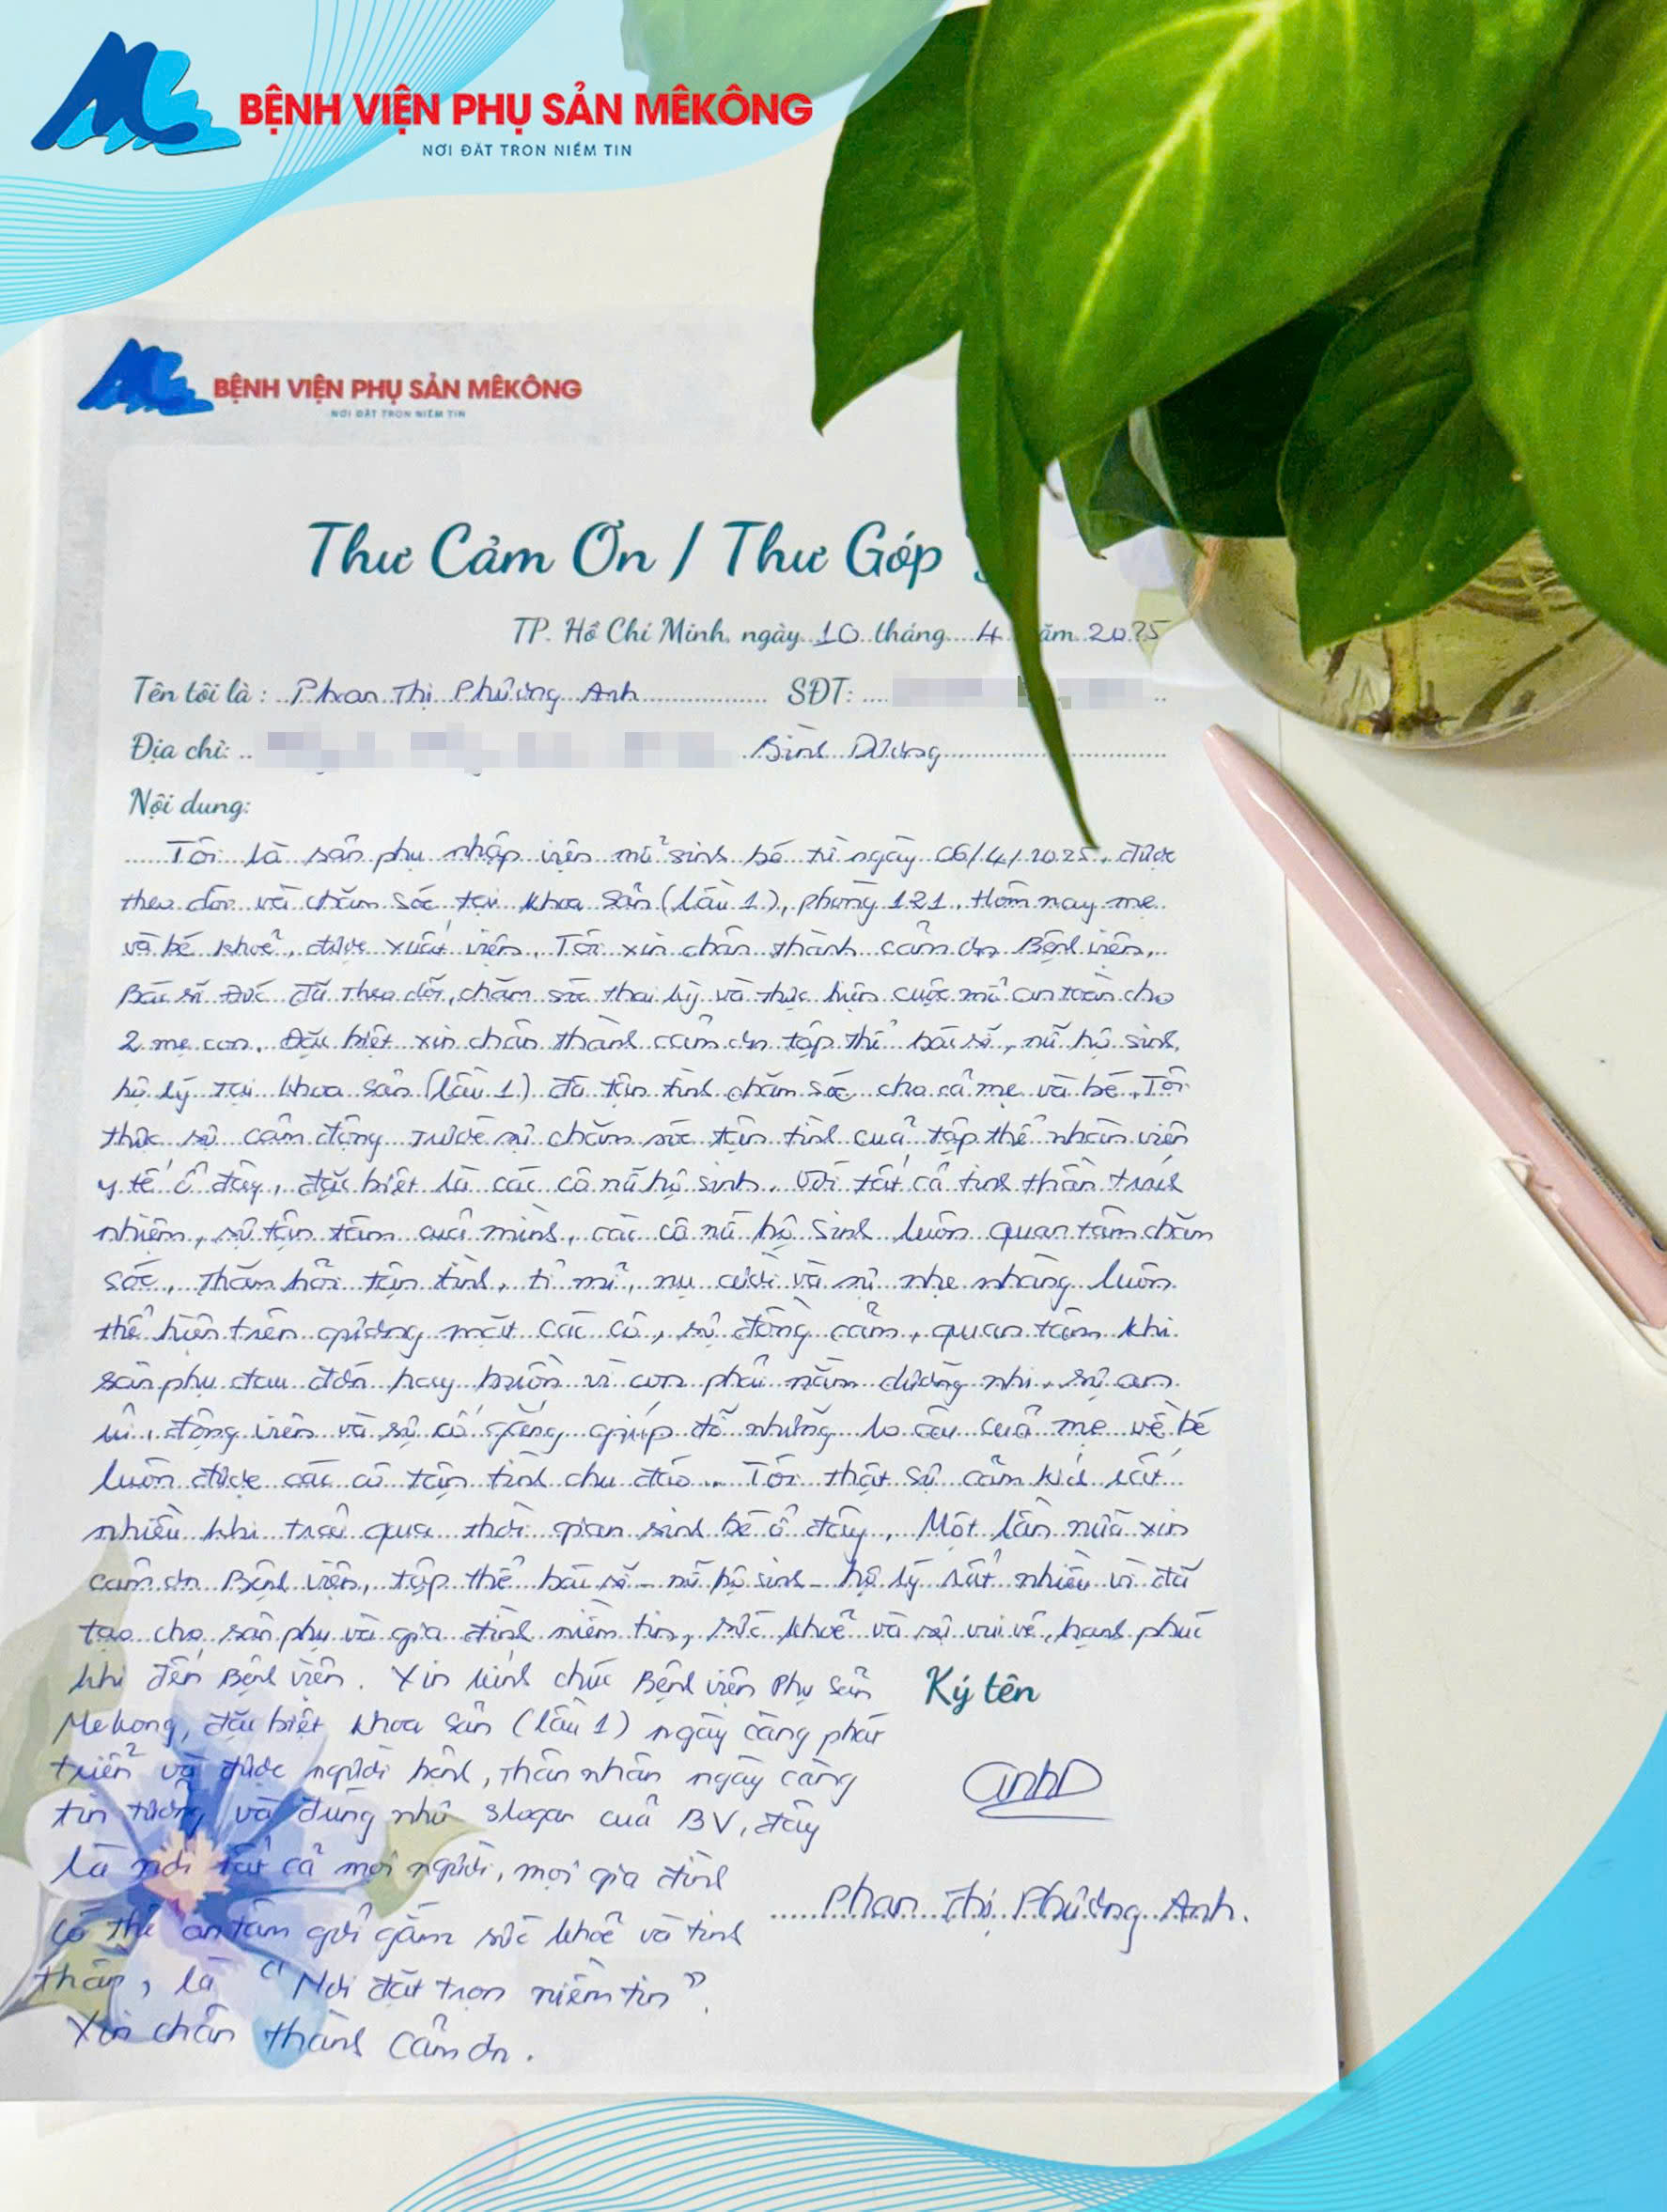 BỆNH VIỆN PHỤ SẢN MÊKÔNG
NƠI ĐẶT TRỌN NIỀM TIN
BỆNH VIỆN PHỤ SẢN MÊKÔNG
NƠI ĐẶT TRỌN NIỀM TIN
Thư Cảm Ơn / Thư Góp
TP. Hồ Chí Minh, ngày 10 tháng 4 ăm 2025
Tên tôi là : Phan Thị Phương Anh SĐT:
Địa chỉ: Bình Dương
Nội dung:
Tôi là sản phụ nhập viện mổ sinh bé từ ngày 06/4/2025, được
theo dõi và chăm sóc tại khoa Sản (lầu 1), phòng 121. Hôm nay mẹ
và bé khoẻ, được xuất viện. Tôi xin chân thành cảm ơn Bệnh viện,
Bác sĩ Đức đã theo dõi, chăm sóc thai kỳ và thực hiện cuộc mổ an toàn cho
2 mẹ con. Đặc biệt xin chân thành cảm ơn tập thể bác sĩ, nữ hộ sinh,
hộ lý tại khoa sản (lầu 1) đã tận tình chăm sóc cho cả mẹ và bé. Tôi
thực sự cảm động trước sự chăm sóc tận tình của tập thể nhân viên
y tế ở đây, đặc biệt là các cô nữ hộ sinh. Với tất cả tinh thần trách
nhiệm, sự tận tâm của mình, các cô nữ hộ sinh luôn quan tâm chăm
sóc, thăm hỏi tận tình, tỉ mỉ, nụ cười và sự nhẹ nhàng luôn
thể hiện trên gương mặt các cô, sự đồng cảm, quan tâm khi
sản phụ đau đớn hay buồn vì con phải nằm dưỡng nhi, sự an
ủi, động viên và sự cố gắng giúp đỡ những lo âu của mẹ về bé
luôn được các cô tận tình chu đáo. Tôi thật sự cảm kích rất
nhiều khi trải qua thời gian sinh bé ở đây. Một lần nữa xin
cảm ơn Bệnh viện, tập thể bác sĩ - nữ hộ sinh - hộ lý rất nhiều vì đã
tạo cho sản phụ và gia đình niềm tin, sức khoẻ và sự vui vẻ, hạnh phúc
khi đến Bệnh viện. Xin kính chúc Bệnh viện Phụ Sản Ký tên
Mekong, đặc biệt khoa Sản (lầu 1) ngày càng phát
triển và được người bệnh, thân nhân ngày càng
tin tưởng và đúng như slogan của BV, đây
là nơi tất cả mọi người, mọi gia đình
có thể an tâm gửi gắm sức khoẻ và tinh
thần, là "Nơi đặt trọn niềm tin".
Xin chân thành cảm ơn.
anh
Phan Thị Phương Anh.